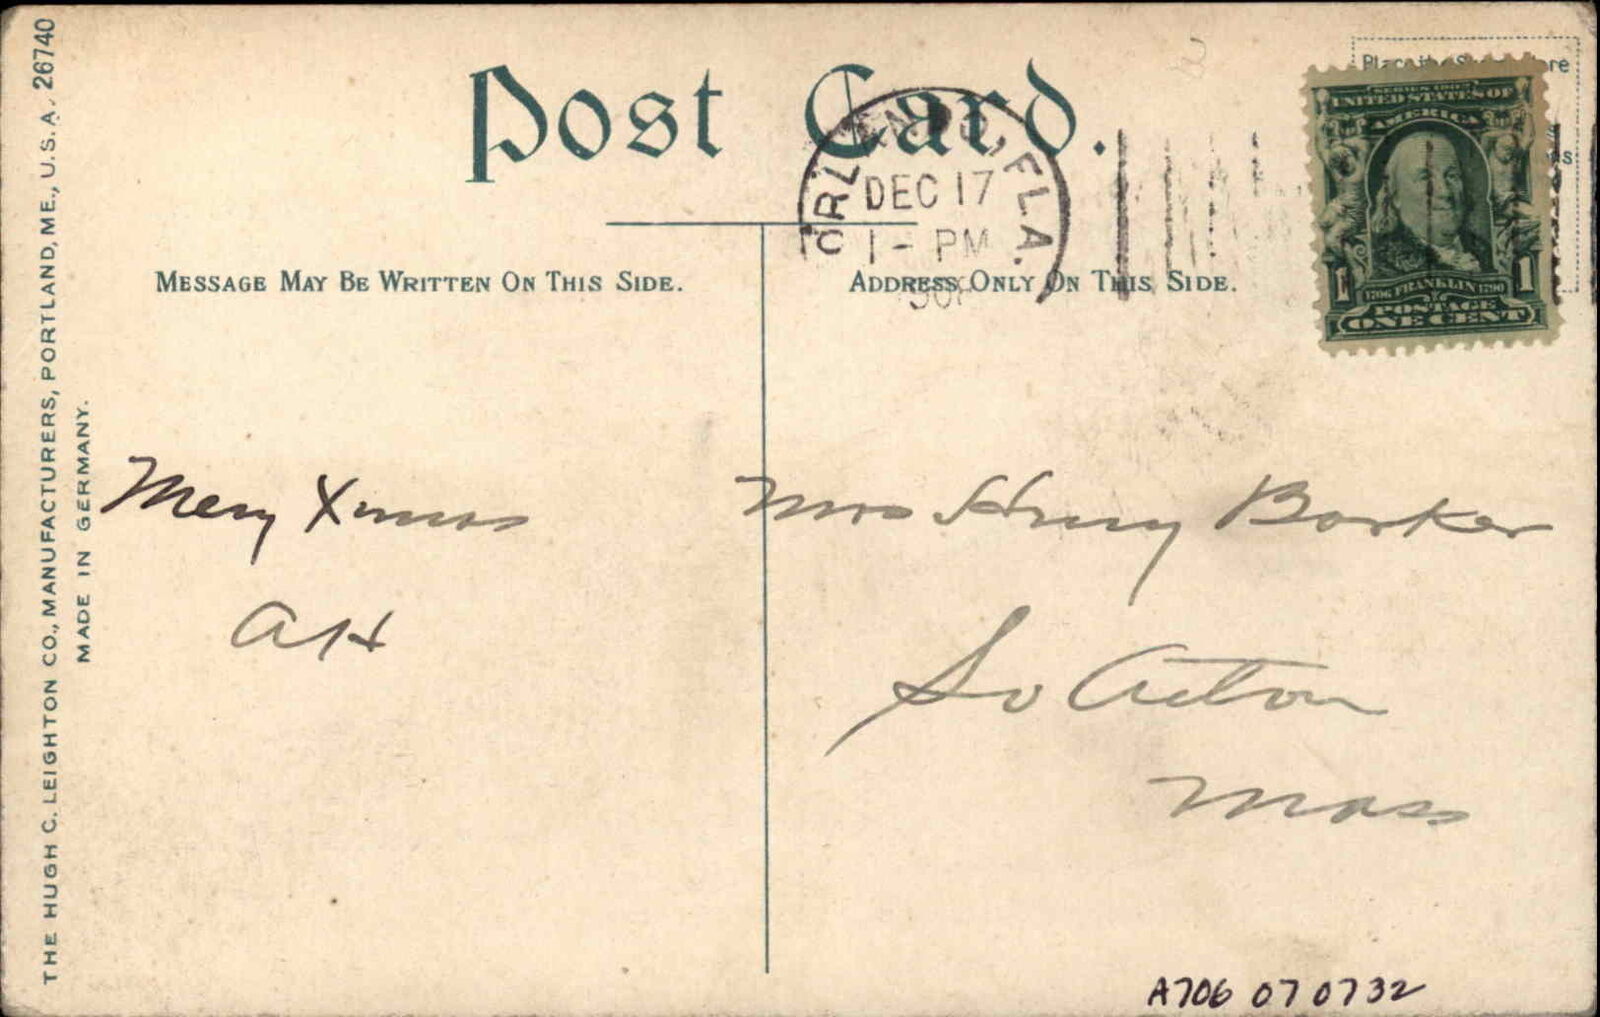 Post Card.
ORLANDO, FLA.
DEC 17
1 - PM
Place the S
ere
SERIES 1902
UNITED STATES OF
AMERICA
1 1706 FRANKLIN 1790 1
POSTAGE
ONE CENT
MESSAGE MAY BE WRITTEN ON THIS SIDE.
ADDRESS ONLY ON THIS SIDE.
THE HUGH C. LEIGHTON CO., MANUFACTURERS, PORTLAND, ME., U.S.A. 26740
MADE IN GERMANY.
Mery Xmas
AH
Mrs Henry Barker
So Acton
Mass
A706 070732